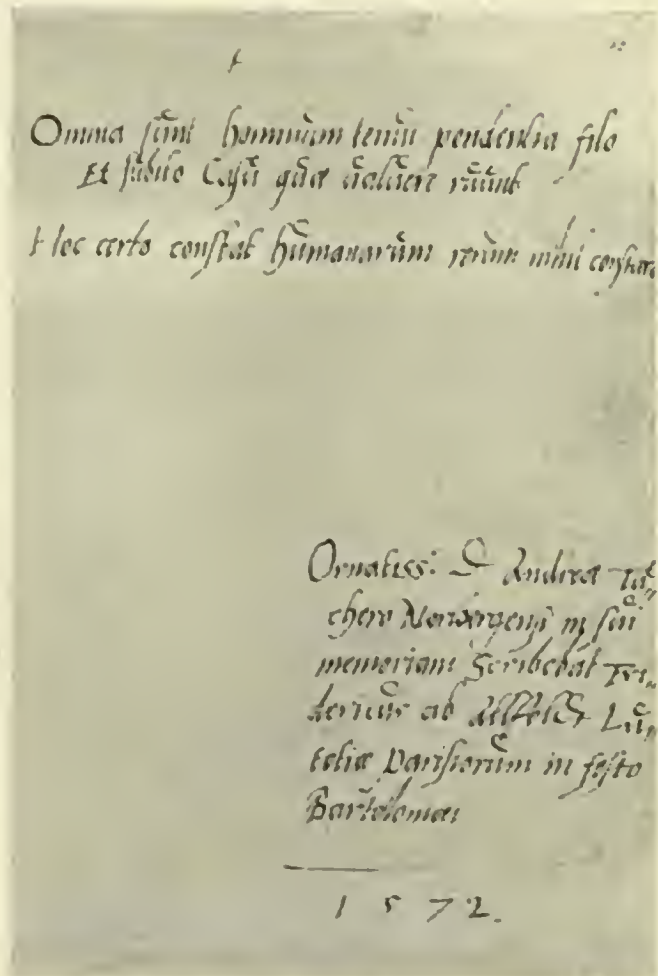 Omnia sunt hominum tenui pendentia filo
Et subito Casu quæ ualuere ruunt
Hoc certo constat humanarum rerum nihil constare
Ornatiss: D Andreæ Tu¬
chero Norbergensi in sui
memoriam Scribebat Fri¬
dericus ab Lu¬
tetiæ Parisiorum in festo
Bartolomæi
1572.